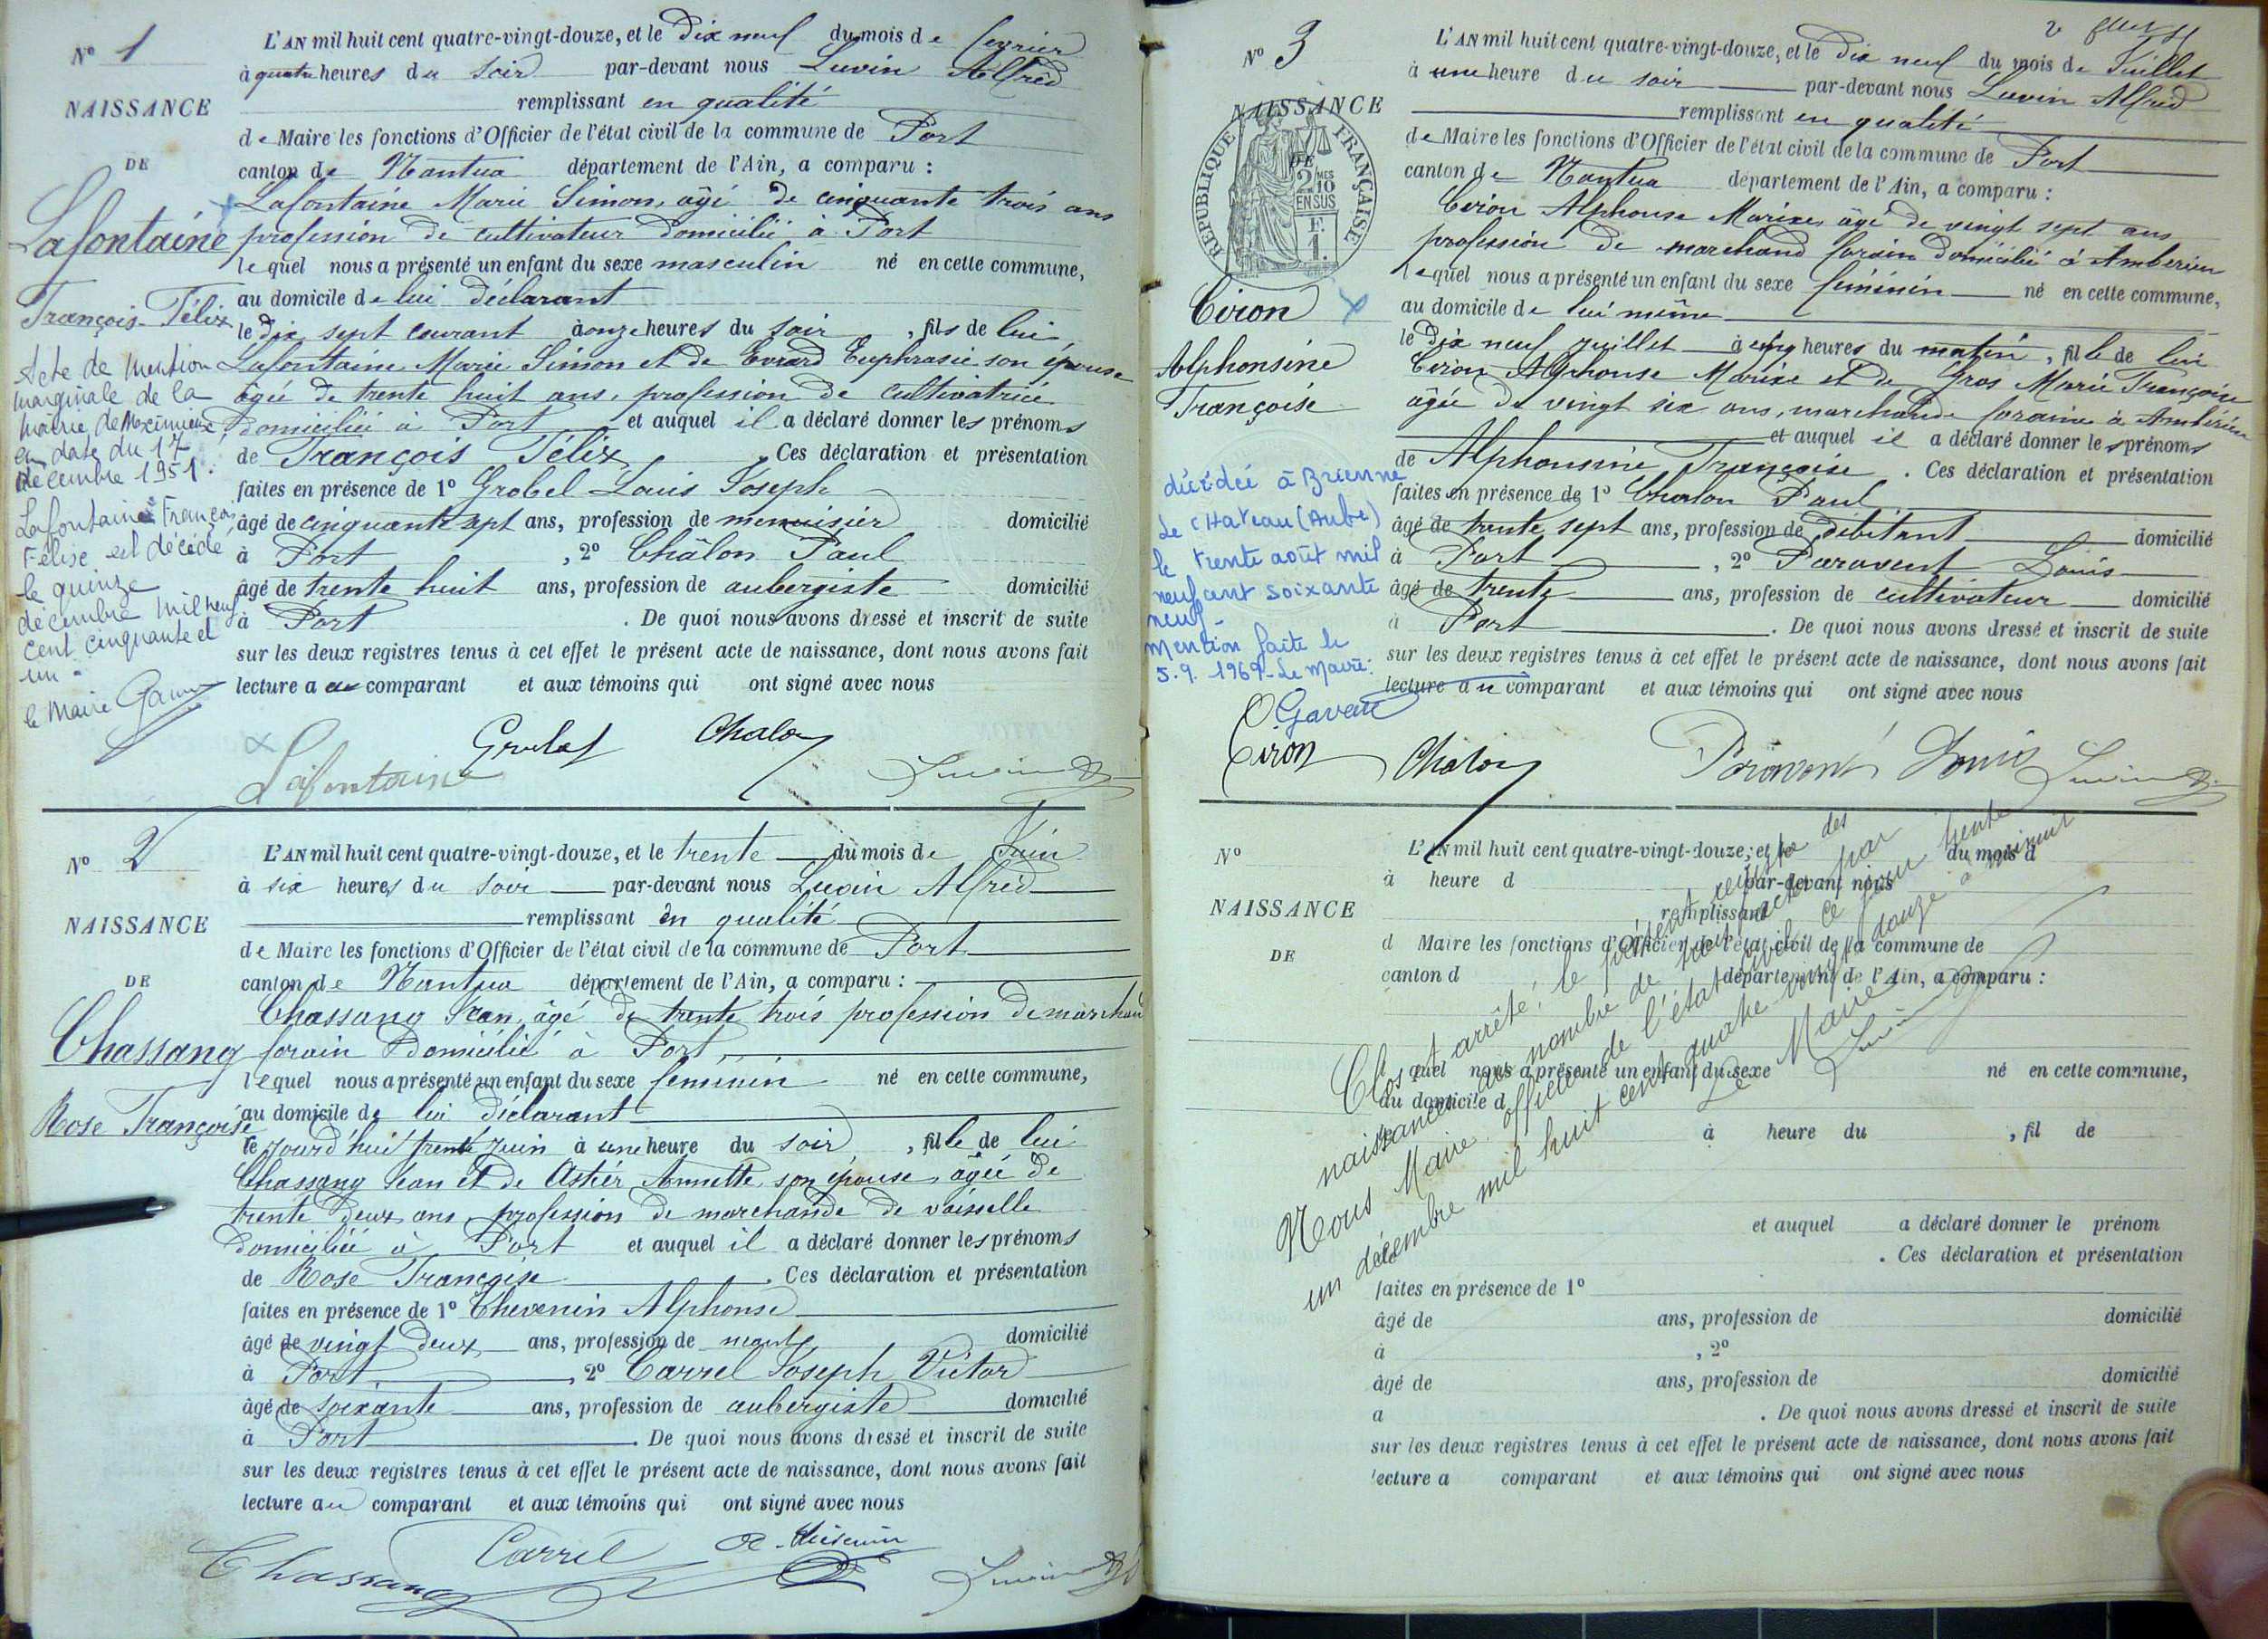 N° 1
NAISSANCE
DE
Lafontaine
François-Félix
Acte de Mention
marginale de la
Mairie de Meximieux
en date du 17
décembre 1951.
Lafontaine François
Félix est décédé
le quinze
décembre mil neuf
cent cinquante et
un.
le Maire
L'AN mil huit cent quatre-vingt-douze, et le Dix neuf du mois de fevrier
à quatre heures du Soir par-devant nous Luvin Alfred
remplissant en qualité
de Maire les fonctions d'Officier de l'état civil de la commune de Port
canton de Nantua département de l'Ain, a comparu :
Lafontaine Marie Simon, âgé de cinquante trois ans
profession de cultivateur domicilié à Port
lequel nous a présenté un enfant du sexe masculin né en cette commune,
au domicile de lui déclarant
le dix sept courant à onze heures du soir, fils de lui
Lafontaine Marie Simon et de Evrard Euphrasie son épouse
âgée de trente huit ans, profession de cultivatrice
domiciliée à Port et auquel il a déclaré donner les prénoms
de François Félix. Ces déclaration et présentation
faites en présence de 1° Grobel Louis Joseph
âgé de cinquante sept ans, profession de menuisier domicilié
à Port, 2° Châlon Paul
âgé de trente huit ans, profession de aubergiste domicilié
à Port. De quoi nous avons dressé et inscrit de suite
sur les deux registres tenus à cet effet le présent acte de naissance, dont nous avons fait
lecture a au comparant et aux témoins qui ont signé avec nous
Lafontaine Grobel Chalon Luvin
N° 2
NAISSANCE
DE
Chassang
Rose Françoise
L'AN mil huit cent quatre-vingt-douze, et le trente du mois de Juin
à six heures du soir par-devant nous Luvin Alfred
remplissant en qualité
de Maire les fonctions d'Officier de l'état civil de la commune de Port
canton de Nantua département de l'Ain, a comparu :
Chassang Jean, âgé de trente trois profession de marchand
forain domicilié à Port
lequel nous a présenté un enfant du sexe feminin né en cette commune,
au domicile de lui déclarant
le jourd'hui trente juin à une heure du soir, fille de lui
Chassang Jean et de Astier Annette, son épouse, âgée de
trente deux ans profession de marchande de vaisselle
domiciliée à Port et auquel il a déclaré donner les prénoms
de Rose Françoise. Ces déclaration et présentation
faites en présence de 1° Thevenin Alphonse
âgé de vingt deux ans, profession de domicilié
à Port, 2° Carrel Joseph Victor
âgé de soixante ans, profession de aubergiste domicilié
à Port. De quoi nous avons dressé et inscrit de suite
sur les deux registres tenus à cet effet le présent acte de naissance, dont nous avons fait
lecture au comparant et aux témoins qui ont signé avec nous
Chassang Carrel A. Thevenin Luvin
N° 3
NAISSANCE
DE
RÉPUBLIQUE FRANÇAISE
2 MES
10
EN SUS
F.
1.
Ciron
Alphonsine
Françoise
décédée à Brienne
Le Chateau (Aube)
le trente août mil
neuf cent soixante
neuf -
Mention faite le
5.9.1969 - Le Maire:
L'AN mil huit cent quatre-vingt-douze, et le Dix neuf du mois de Juillet
à une heure du soir par-devant nous Luvin Alfred
remplissant en qualité
de Maire les fonctions d'Officier de l'état civil de la commune de Port
canton de Nantua département de l'Ain, a comparu :
Ciron Alphonse Marixe, âgé de vingt sept ans
profession de marchand forain domicilié à Amberieu
lequel nous a présenté un enfant du sexe féminin né en cette commune,
au domicile de lui même
le dix neuf juillet à cinq heures du matin, fille de lui
Ciron Alphonse Marixe et de Gros Marie Françoise
âgée de vingt six ans, marchande foraine à Ambérieu
et auquel il a déclaré donner les prénoms
de Alphonsine Françoise. Ces déclaration et présentation
faites en présence de 1° Chalon Paul
âgé de trente sept ans, profession de débitant domicilié
à Port, 2° Paravent Louis
âgé de trente ans, profession de cultivateur domicilié
à Port. De quoi nous avons dressé et inscrit de suite
sur les deux registres tenus à cet effet le présent acte de naissance, dont nous avons fait
lecture au comparant et aux témoins qui ont signé avec nous
Ciron Chalon Paravent Louis Luvin
N°
NAISSANCE
DE
L'AN mil huit cent quatre-vingt-douze, et le du mois d
à heure d par-devant nous
remplissant
d Maire les fonctions d'Officier de l'état civil de la commune de
canton d département de l'Ain, a comparu :
l quel nous a présenté un enfant du sexe né en cette commune,
au domicile d
le à heure du , fil de
et auquel a déclaré donner le prénom
. Ces déclaration et présentation
faites en présence de 1°
âgé de ans, profession de domicilié
à , 2°
âgé de ans, profession de domicilié
à . De quoi nous avons dressé et inscrit de suite
sur les deux registres tenus à cet effet le présent acte de naissance, dont nous avons fait
lecture a comparant et aux témoins qui ont signé avec nous
Clos et arrêté, le présent registre des
naissances au nombre de trois actes par
Nous Maire officier de l'état civil ce jour trente
un décembre mil huit cent quatre vingt douze à minuit
Le Maire
Luvin